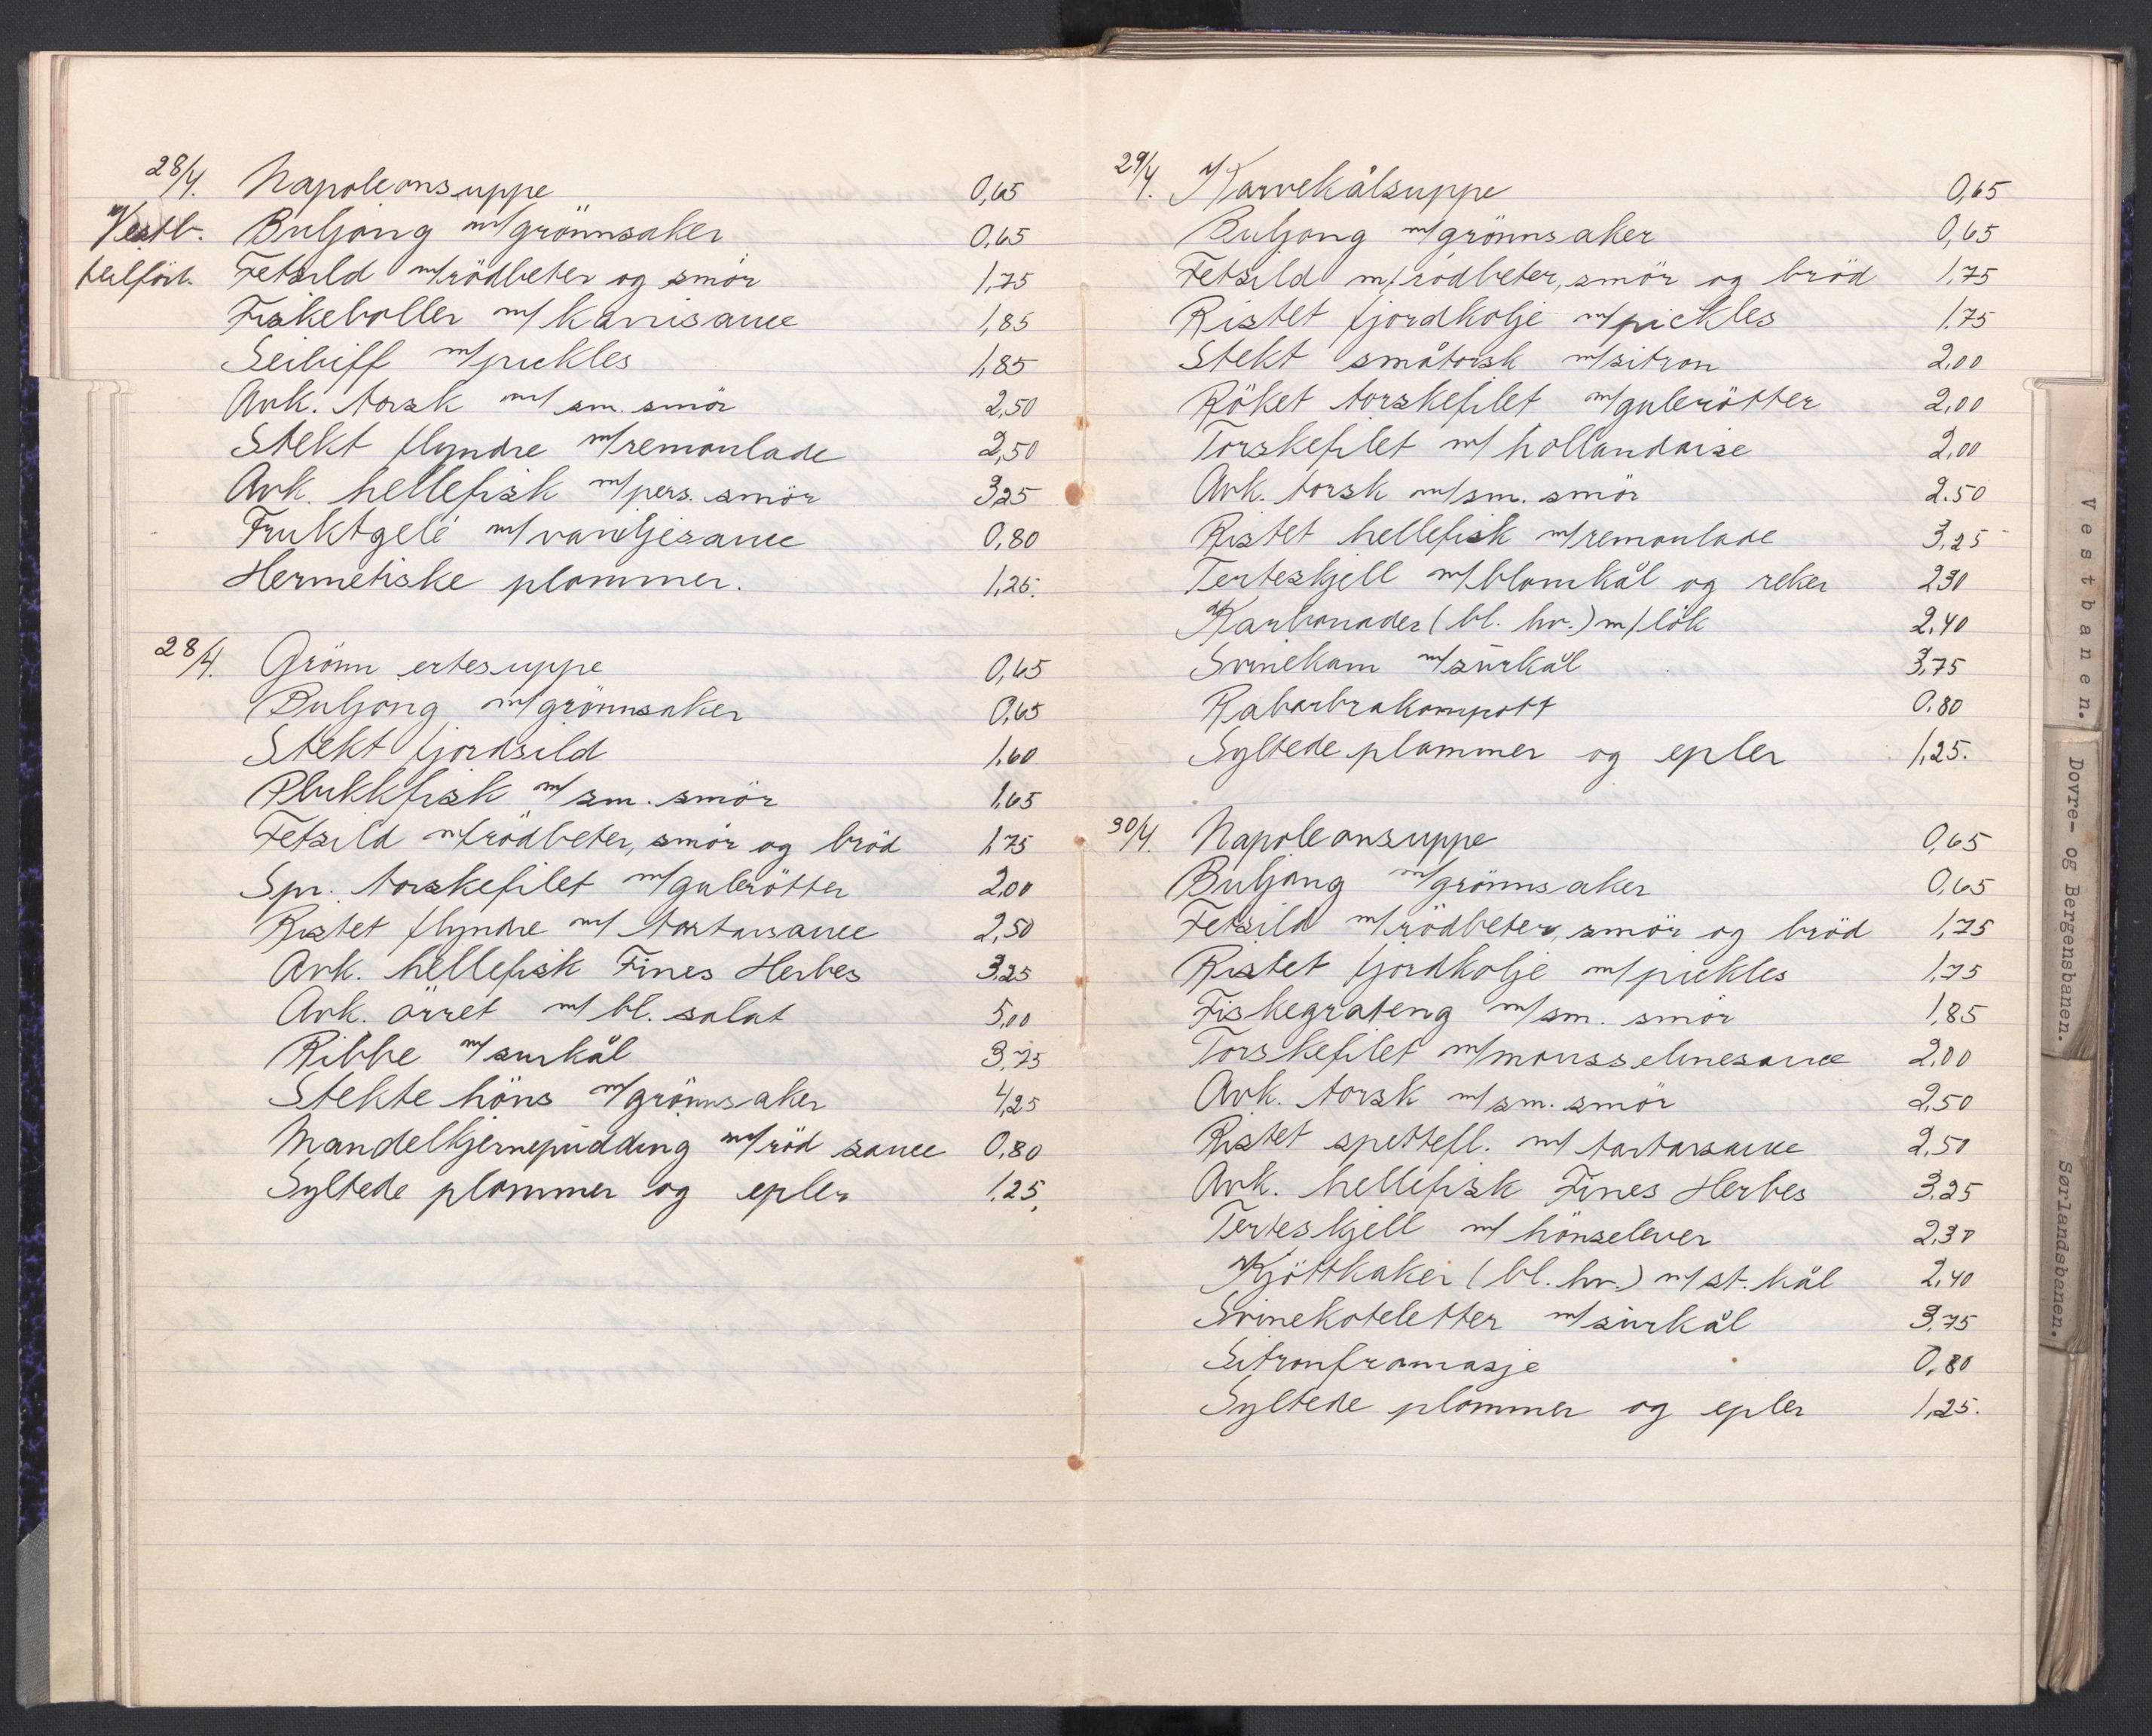 28/4. Napoleonsuppe 0,65
Vestb. Buljong m/grönnsaker 0,65
tilfört. Fetsild m/rödbeter og smör 1,75
Fiskeboller m/karrisauce 1,85
Seibiff m/pickles 1,85
Avk. torsk m/ sm. smör 2,50
Stekt flyndre m/remoulade 2,50
Avk. hellefisk m/pers. smör 3,25
Fruktgelé m/vaniljesauce 0,80
Hermetiske plommer. 1,25.
28/4. Grönn ertesuppe 0,65
Buljong m/grönnsaker 0,65
Stekt fjordsild 1,60
Plukkfisk m/ sm. smör 1,65
Fetsild m/rödbeter, smör og bröd 1,75
Spr. torskefilet m/gulerötter 2,00
Ristet flyndre m/ tartarsauce 2,50
Avk. hellefisk Fines Herbes 3,25
Avk. örret m/ bl. salat 5,00
Ribbe m/surkål 3,75
Stekte höns m/grönnsaker 4,25
Mandelkjernepudding m/röd sauce 0,80
Syltede plommer og epler 1,25.
29/4. Karvekålsuppe 0,65
Buljong m/grönnsaker 0,65
Fetsild m/rödbeter, smör og bröd 1,75
Ristet fjordkolje m/pickles 1,75
Stekt småtorsk m/sitron 2,00
Röket torskefilet m/gulerötter 2,00
Torskefilet m/ hollandaise 2,00
Avk. torsk m/sm. smör 2.50
Ristet hellefisk m/remoulade 3,25
Terteskjell m/blomkål og reker 2,30
Karbonader (bl. hv.) m/lök 2,40
Svinekam m/surkål 3,75
Rabarbrakompott 0.80
Syltede plommer og epler 1,25.
30/4. Napoleonsuppe 0,65
Buljong m/grönnsaker 0,65
Fetsild m/rödbeter, smör og bröd 1,75
Ristet fjordkolje m/pickles 1,75
Fiskegrateng m/sm. smör 1,85
Torskefilet m/mousselinesauce 2,00
Avk. torsk m/sm. smör 2,50
Ristet spettefl. m/ tartarsauce 2,50
Avk. hellefisk Fines Herbes 3,25
Terteskjell m/ hönselever 2,30
Kjöttkaker (bl. hv.) m/st. kål 2,40
Svinekoteletter m/surkål 3,75
Sitronfromasje 0,80
Syltede plommer og epler 1,25.
Vestbanen.
Dovre- og Bergensbanen.
Sørlandsbanen.